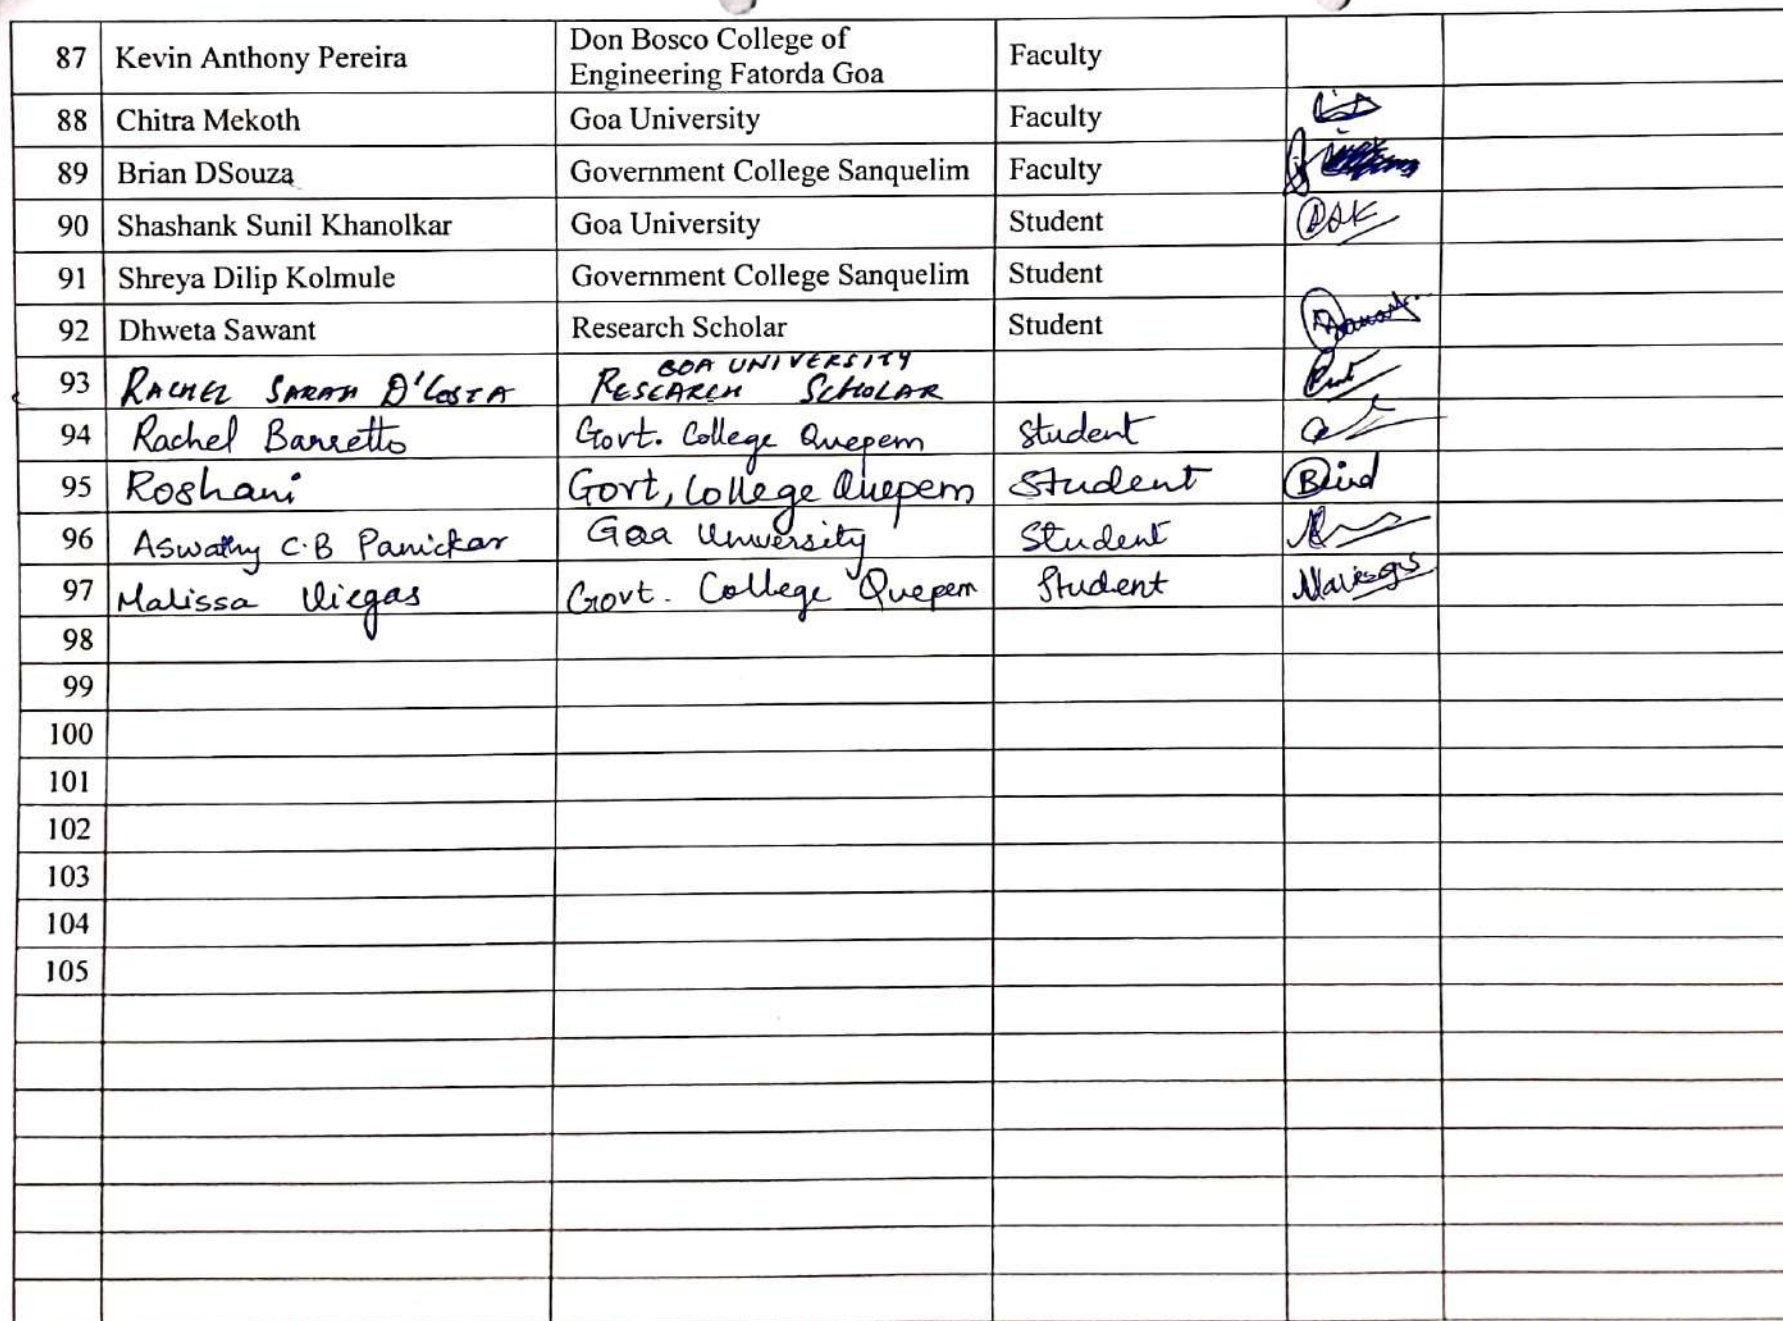 87 Kevin Anthony Pereira Don Bosco College of Engineering Fatorda Goa Faculty
88 Chitra Mekoth Goa University Faculty
89 Brian DSouza Government College Sanquelim Faculty
90 Shashank Sunil Khanolkar Goa University Student
91 Shreya Dilip Kolmule Government College Sanquelim Student
92 Dhweta Sawant Research Scholar Student
93 RACHEL SARAH D'COSTA GOA UNIVERSITY RESEARCH SCHOLAR
94 Rachel Barretto Govt. College Quepem Student
95 Roshani Govt, College Quepem Student
96 Aswathy C.B Panickar Goa University Student
97 Malissa Viegas Govt. College Quepem Student
98
99
100
101
102
103
104
105